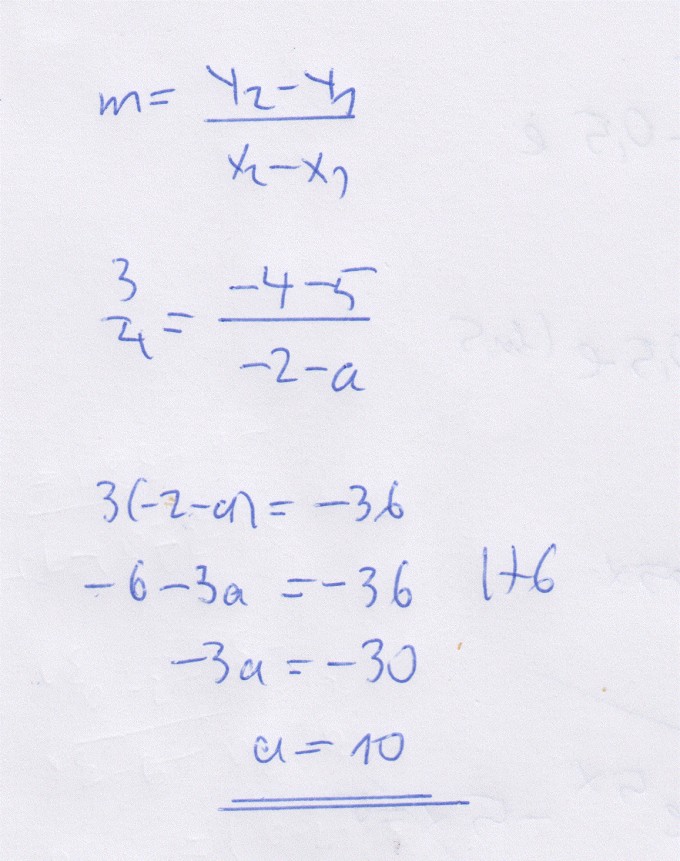 m = \frac{y_2 - y_1}{x_2 - x_1}
\frac{3}{4} = \frac{-4-5}{-2-a}
3(-2-a) = -36
-6-3a = -36 |+6
-3a = -30
a = 10